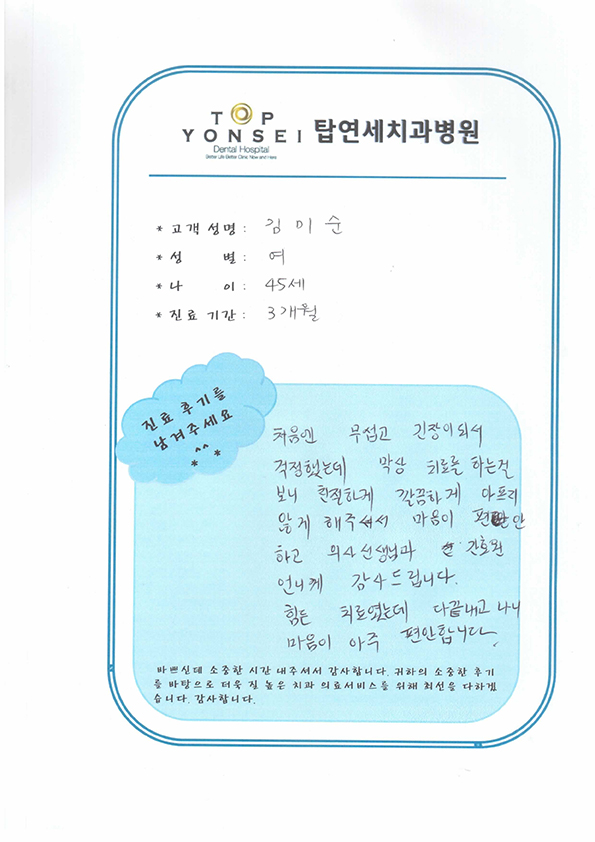 TOP
YONSEI 탑연세치과병원
Dental Hospital
Better Life Better Clinic Now and Here
* 고객 성명 : 김 미 순
* 성 별 : 여
* 나 이 : 45세
* 진료 기간 : 3개월
진료 후기를
남겨주세요
^^
* *
처음엔 무섭고 긴장이되서
걱정했는데 막상 치료를 하는걸
보니 친절하게 깔끔하게 아프지
않게 해주셔서 마음이 편안
하고 의사선생님과 간호원
언니께 감사드립니다.
힘든 치료였는데 다끝내고 나니
마음이 아주 편안합니다.
바쁘신데 소중한 시간 내주셔서 감사합니다. 귀하의 소중한 후기
를 바탕으로 더욱 질 높은 치과 의료서비스를 위해 최선을 다하겠
습니다. 감사합니다.